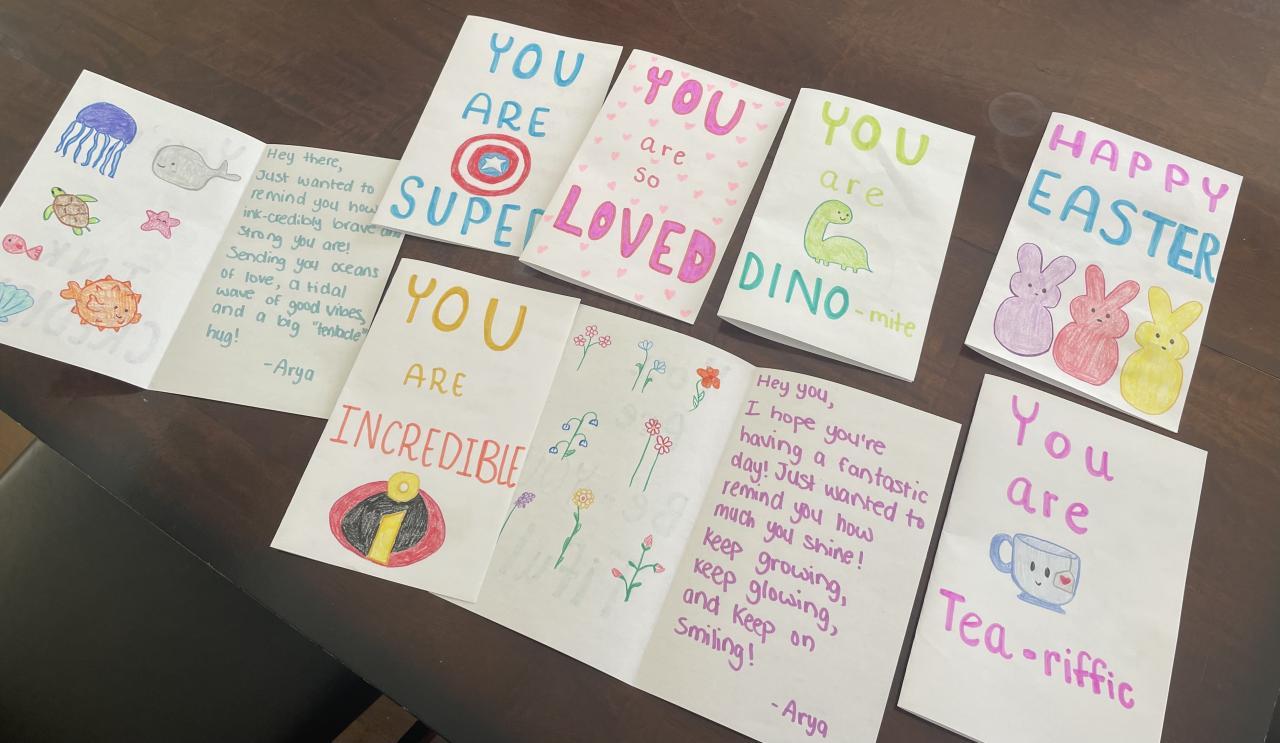 Hey there,
Just wanted to
remind you how
ink-credibly brave and
strong you are!
Sending you oceans
of love, a tidal
wave of good vibes,
and a big "tentacle"
hug!
-Arya
YOU
ARE
SUPER
YOU
are
so
LOVED
YOU
are
DINO-mite
HAPPY
EASTER
YOU
ARE
INCREDIBLE
i
Hey you,
I hope you're
having a fantastic
day! Just wanted to
remind you how
much you shine!
Keep growing,
Keep glowing,
and Keep on
Smiling!
-Arya
You
are
Tea-riffic